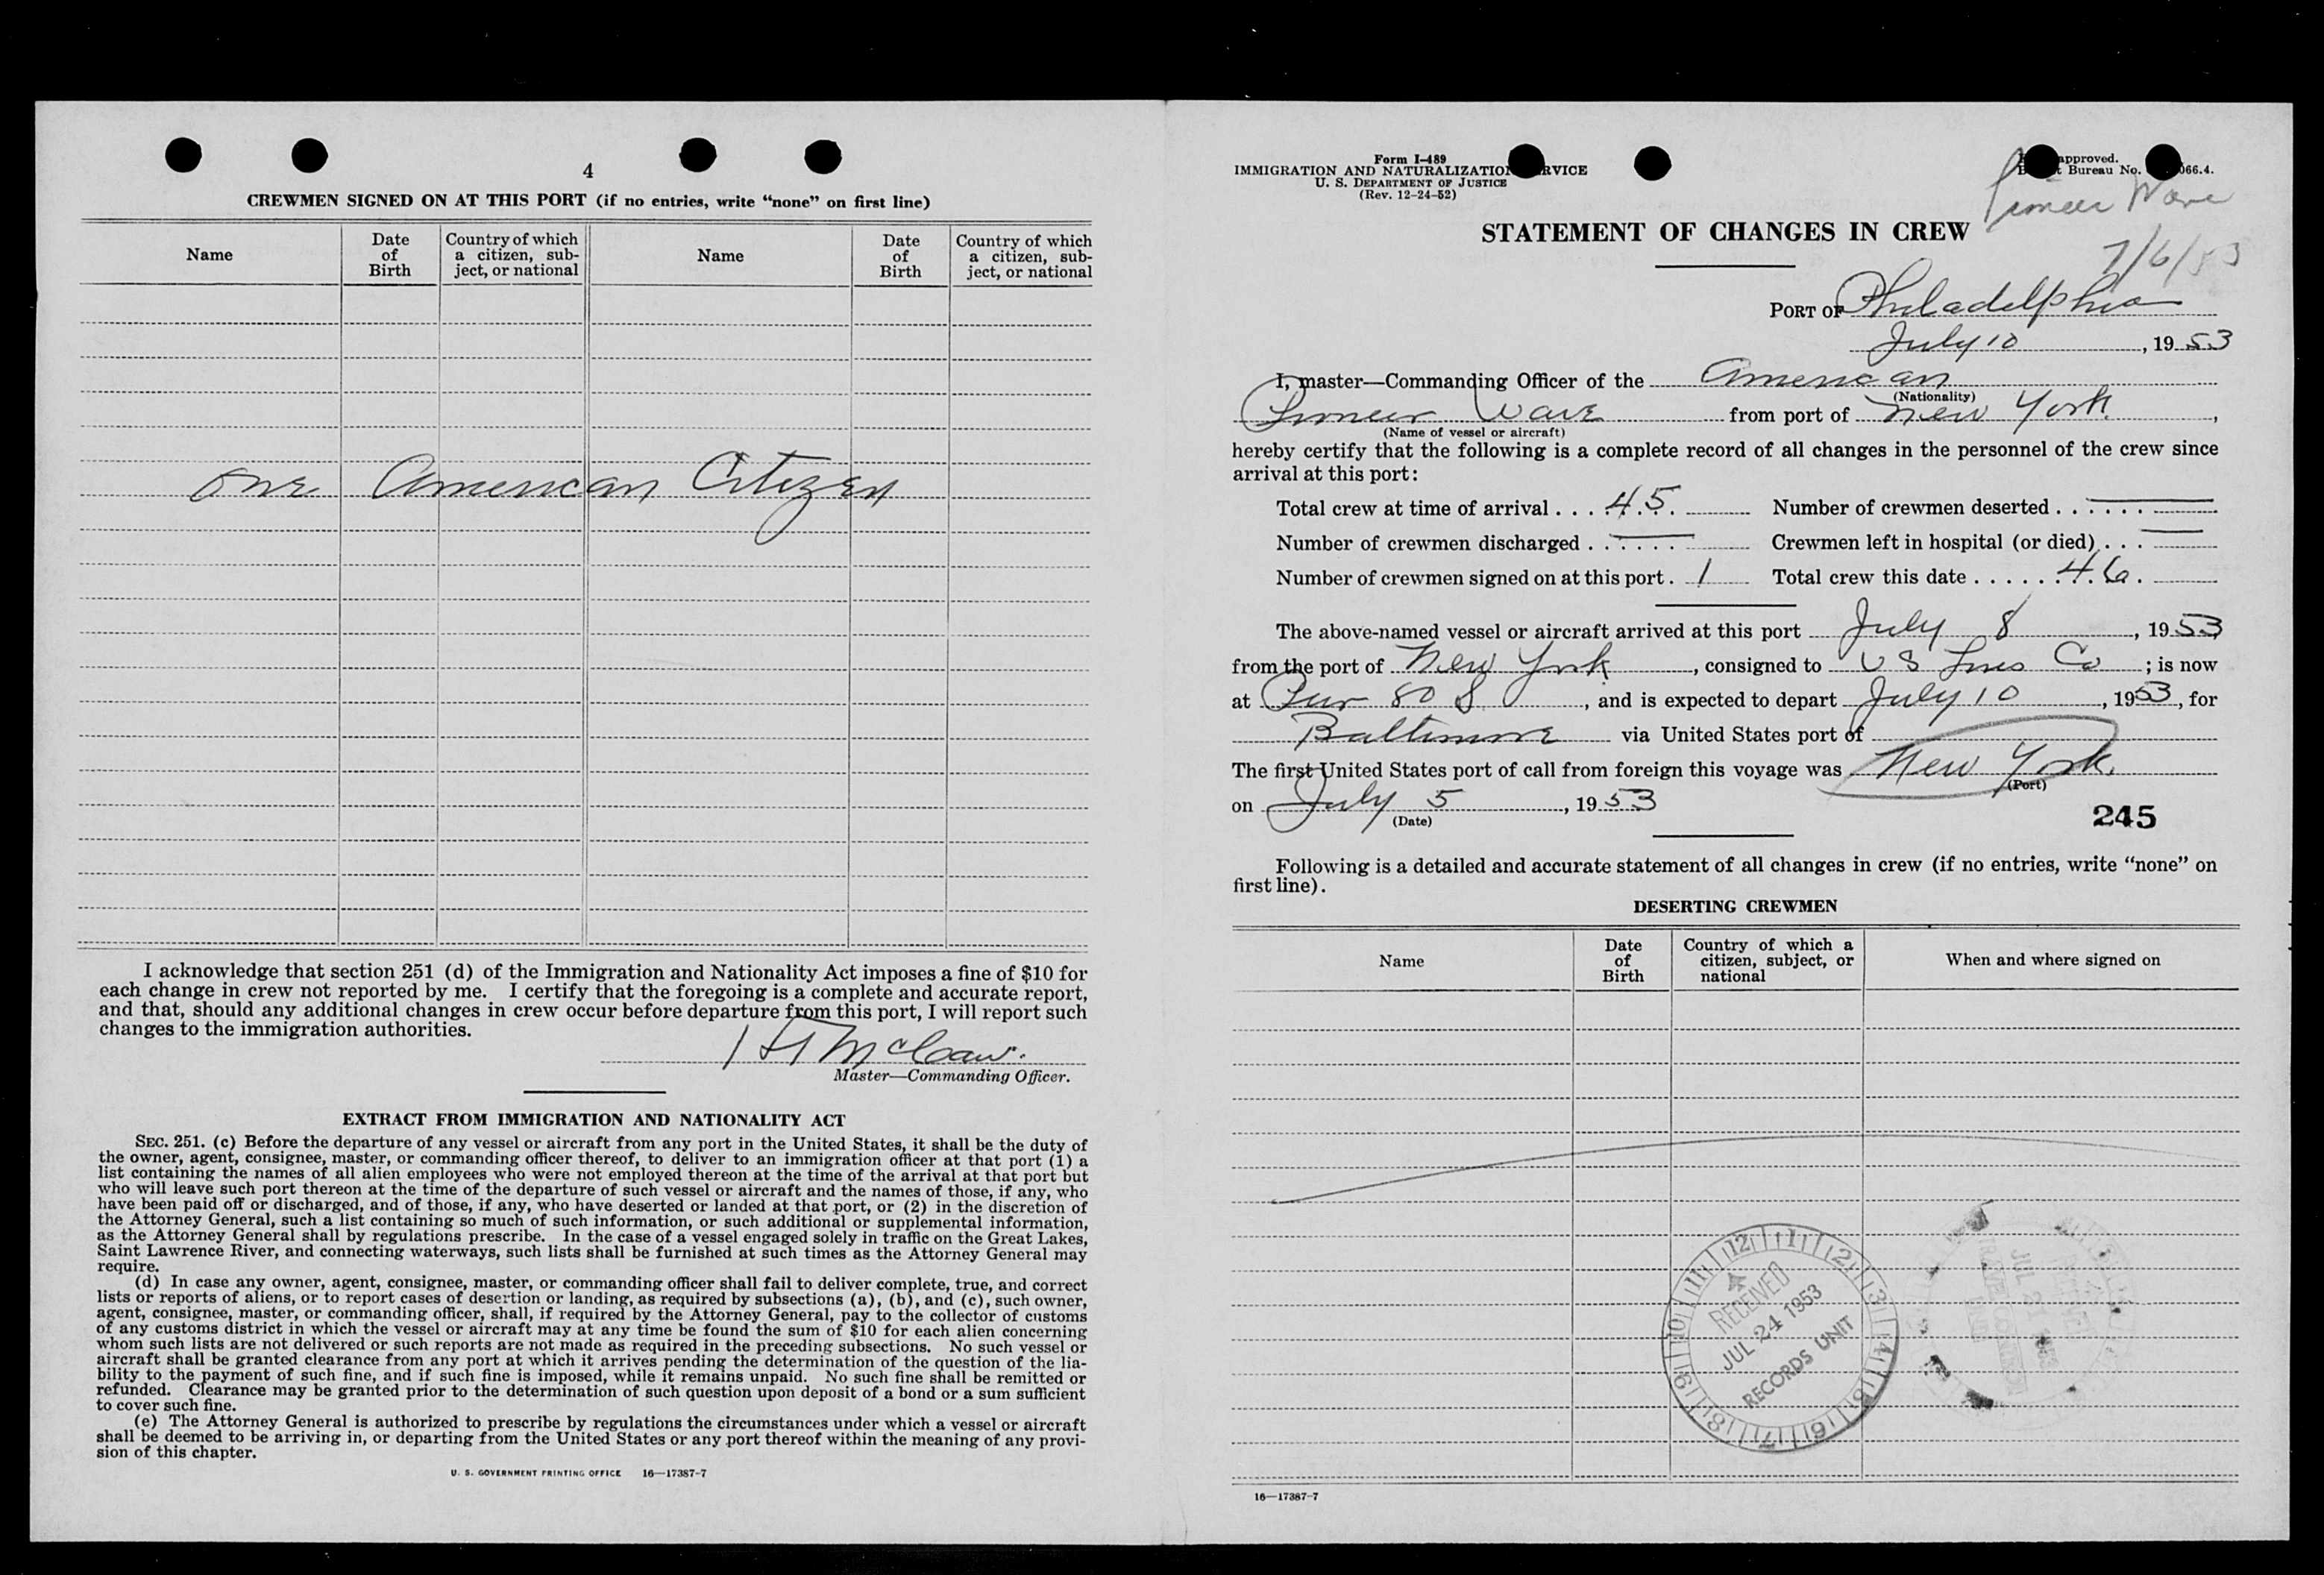 4
CREWMEN SIGNED ON AT THIS PORT (if no entries, write “none” on first line)
Name
Date of Birth
Country of which a citizen, subject, or national
Name
Date of Birth
Country of which a citizen, subject, or national
one American Citizen
I acknowledge that section 251 (d) of the Immigration and Nationality Act imposes a fine of $10 for
each change in crew not reported by me. I certify that the foregoing is a complete and accurate report,
and that, should any additional changes in crew occur before departure from this port, I will report such
changes to the immigration authorities.
McCaw.
Master—Commanding Officer.
EXTRACT FROM IMMIGRATION AND NATIONALITY ACT
SEC. 251. (c) Before the departure of any vessel or aircraft from any port in the United States, it shall be the duty of
the owner, agent, consignee, master, or commanding officer thereof, to deliver to an immigration officer at that port (1) a
list containing the names of all alien employees who were not employed thereon at the time of the arrival at that port but
who will leave such port thereon at the time of the departure of such vessel or aircraft and the names of those, if any, who
have been paid off or discharged, and of those, if any, who have deserted or landed at that port, or (2) in the discretion of
the Attorney General, such a list containing so much of such information, or such additional or supplemental information,
as the Attorney General shall by regulations prescribe. In the case of a vessel engaged solely in traffic on the Great Lakes,
Saint Lawrence River, and connecting waterways, such lists shall be furnished at such times as the Attorney General may
require.
(d) In case any owner, agent, consignee, master, or commanding officer shall fail to deliver complete, true, and correct
lists or reports of aliens, or to report cases of desertion or landing, as required by subsections (a), (b), and (c), such owner,
agent, consignee, master, or commanding officer, shall, if required by the Attorney General, pay to the collector of customs
of any customs district in which the vessel or aircraft may at any time be found the sum of $10 for each alien concerning
whom such lists are not delivered or such reports are not made as required in the preceding subsections. No such vessel or
aircraft shall be granted clearance from any port at which it arrives pending the determination of the question of the lia-
bility to the payment of such fine, and if such fine is imposed, while it remains unpaid. No such fine shall be remitted or
refunded. Clearance may be granted prior to the determination of such question upon deposit of a bond or a sum sufficient
to cover such fine.
(e) The Attorney General is authorized to prescribe by regulations the circumstances under which a vessel or aircraft
shall be deemed to be arriving in, or departing from the United States or any port thereof within the meaning of any provi-
sion of this chapter.
U. S. GOVERNMENT PRINTING OFFICE 16—17387-7
Form I-489
IMMIGRATION AND NATURALIZATION SERVICE
U. S. DEPARTMENT OF JUSTICE
(Rev. 12-24-52)
approved.
Bureau No. 066.4.
Pioneer Wave
7/6/53
STATEMENT OF CHANGES IN CREW
PORT OF Philadelphia
July 10, 1953
I, master—Commanding Officer of the American
(Nationality)
Pioneer Wave from port of New York,
(Name of vessel or aircraft)
hereby certify that the following is a complete record of all changes in the personnel of the crew since
arrival at this port:
Total crew at time of arrival . . . 45 Number of crewmen deserted . . . . . . —
Number of crewmen discharged . . . . . . — Crewmen left in hospital (or died) . . . —
Number of crewmen signed on at this port . 1 Total crew this date . . . . . . 46
The above-named vessel or aircraft arrived at this port July 8, 1953
from the port of New York, consigned to U S Lines Co; is now
at Pier 80 S, and is expected to depart July 10, 1953, for
Baltimore via United States port of
The first United States port of call from foreign this voyage was New York.
(Port)
on July 5, 1953
(Date)
245
Following is a detailed and accurate statement of all changes in crew (if no entries, write “none” on
first line).
DESERTING CREWMEN
Name
Date of Birth
Country of which a citizen, subject, or national
When and where signed on
12 1 2 3 4 5 6 7 8 9 10 11
RECEIVED
JUL 24 1953
RECORDS UNIT
JUL 21
16—17387-7